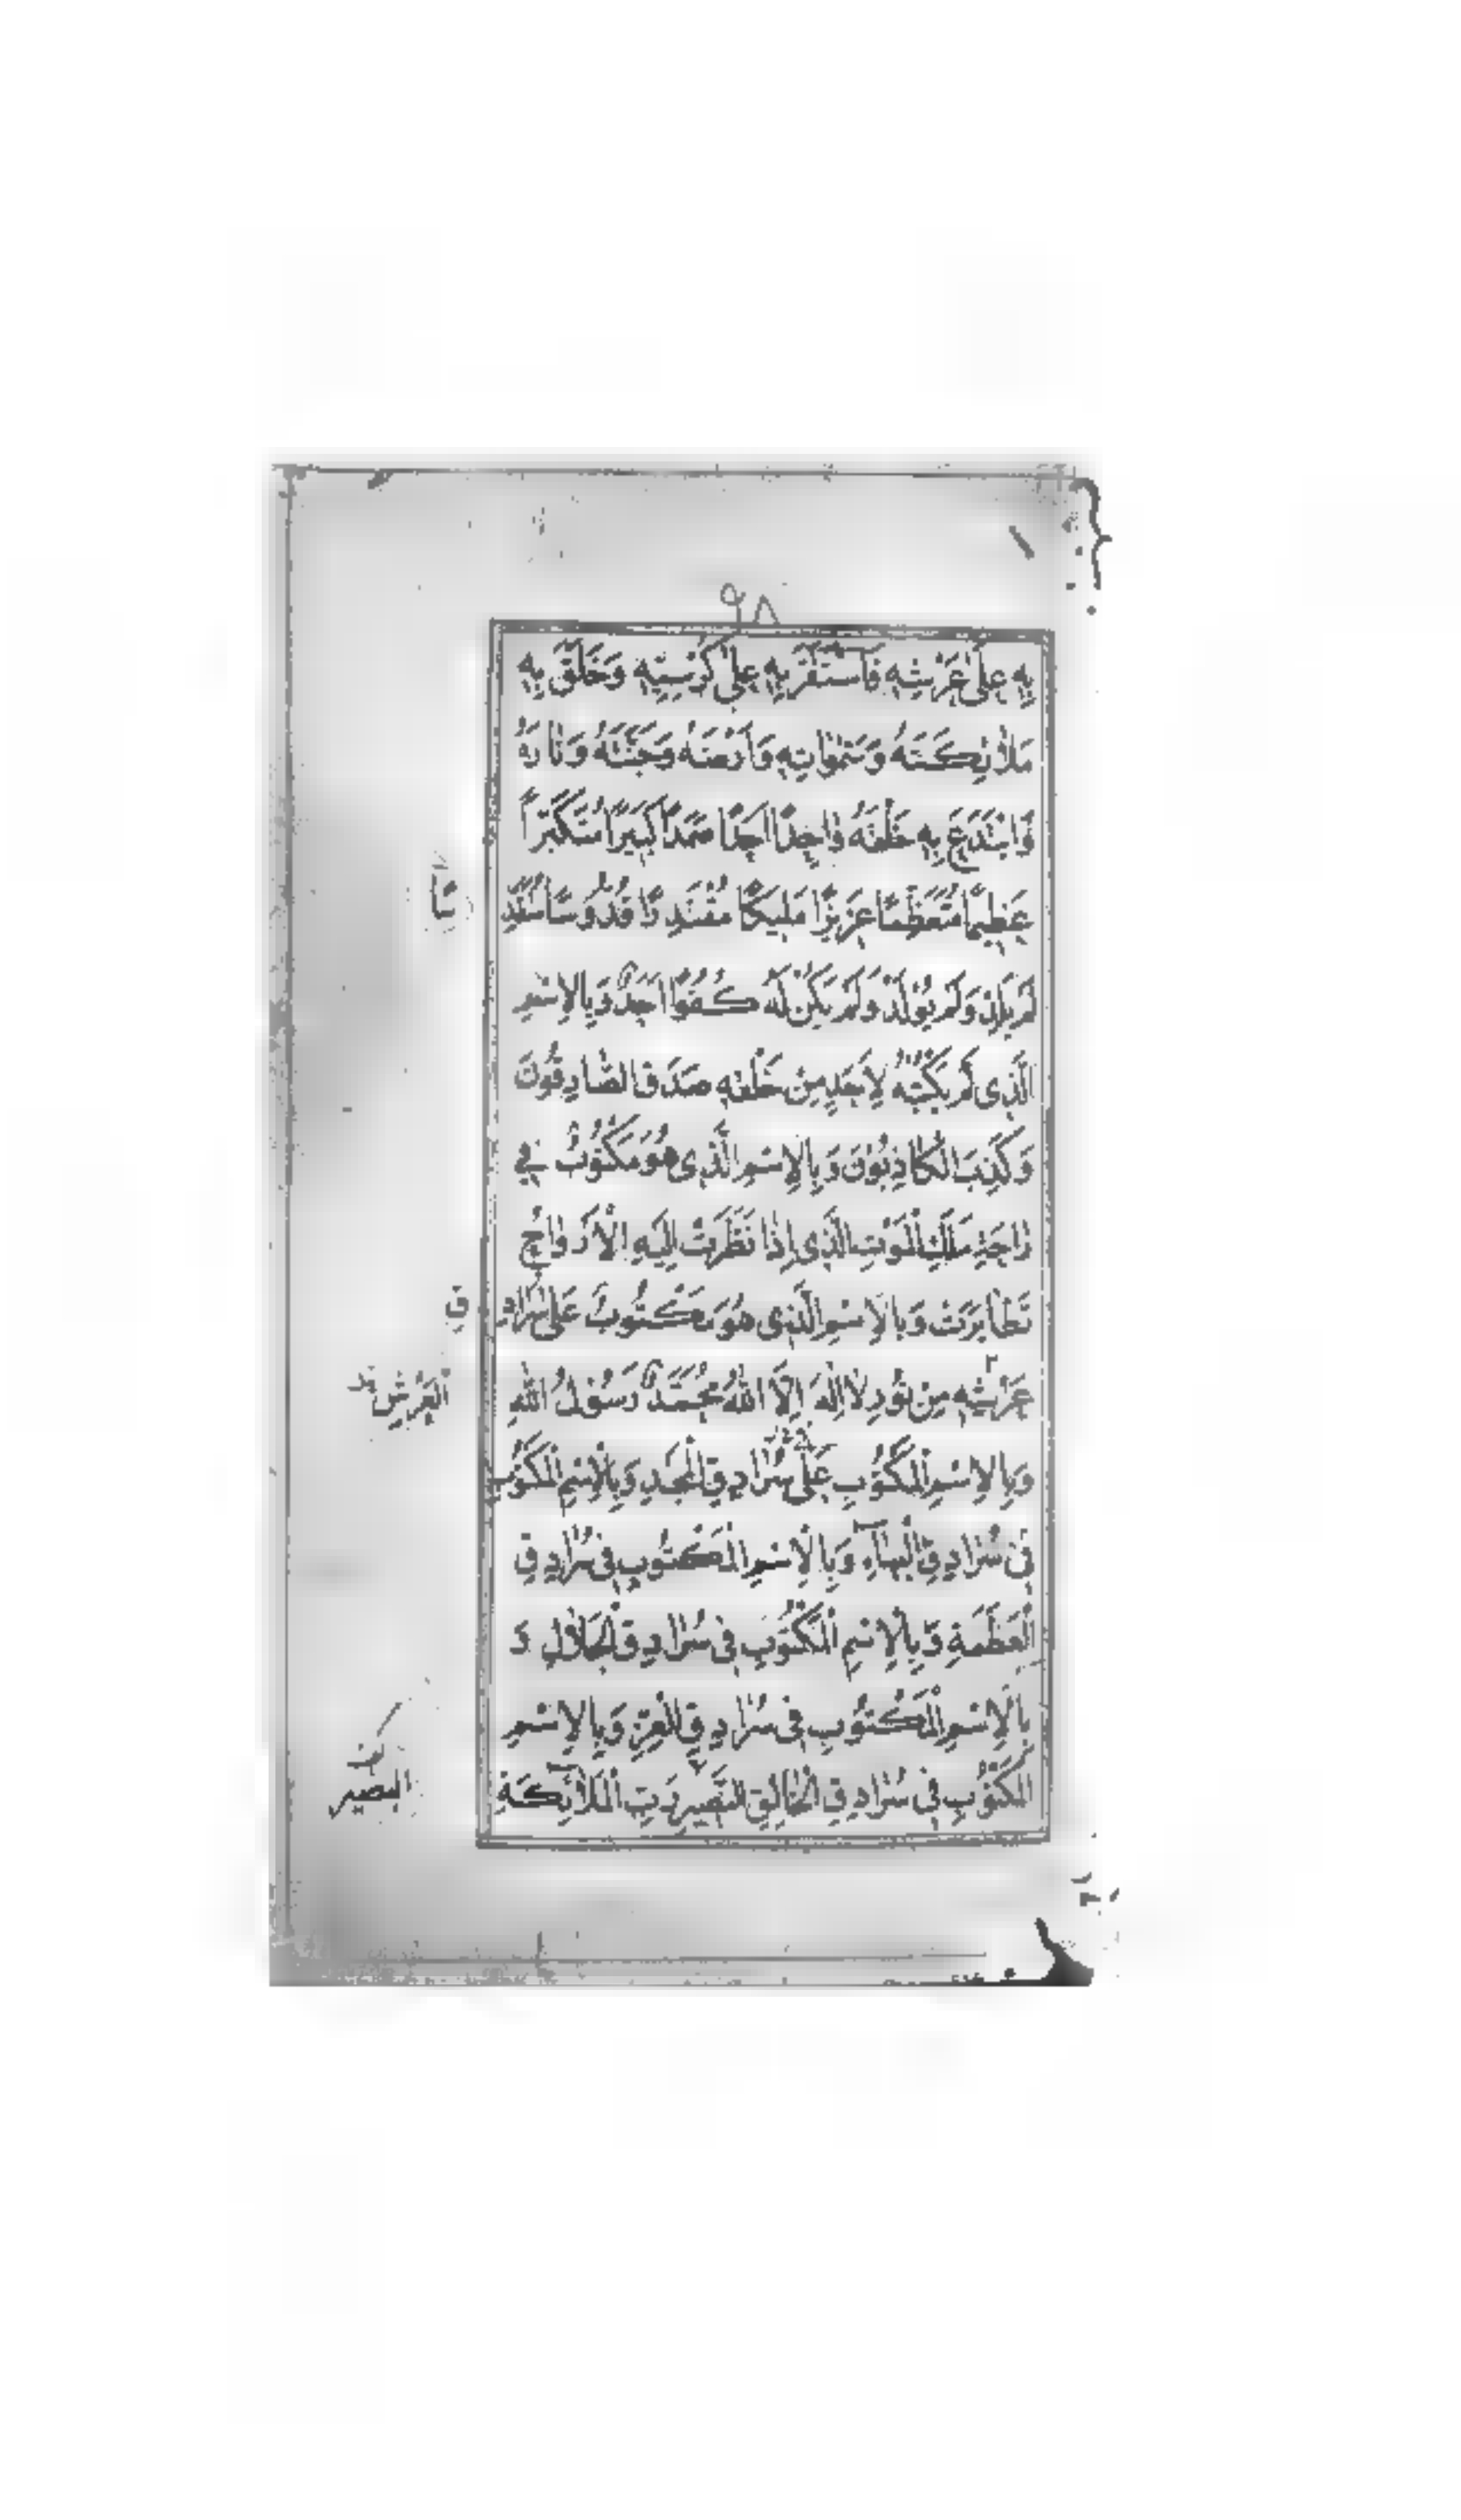 ٩٨
بِهِ عَلَىٰ عَرْشِهِ فَاسْتَقَرَّ بِهِ عَلَىٰ كُرْسِيِّهِ وَخَلَقَ بِهِ
مَلَائِكَتَهُ وَسَمٰوَاتِهِ وَاَرْضَهُ وَجَنَّتَهُ وَنَارَهُ
وَابْتَدَعَ بِهِ خَلْقَهُ وَاحِدًا اَحَدًا صَمَدًا كَبِيرًا مُتَكَبِّرًا
عَظِيمًا مُتَعَظِّمًا عَزِيزًا مَلِيكًا مُقْتَدِرًا قُدُّوسًا مُتَقَدِّ
سًا
لَمْ يَلِدْ وَلَمْ يُولَدْ وَلَمْ يَكُنْ لَهُ كُفُوًا اَحَدٌ وَبِالْاِسْمِ
الَّذِى لَمْ يَكْتُبْهُ لِاَحَدٍ مِنْ خَلْقِهِ صَدَقَ الصَّادِقُونَ
وَكَذِبَ الْكَاذِبُونَ وَبِالْاِسْمِ الَّذِى هُوَ مَكْتُوبٌ فِى
رَاحَةِ مَلَكِ الْمَوْتِ الَّذِى اِذَا نَظَرَتْ اِلَيْهِ الْاَرْوَاحُ
تَطَايَرَتْ وَبِالْاِسْمِ الَّذِى هُوَ مَكْتُوبٌ عَلَىٰ سُرَادِ
قِ
عَرْشِهِ مِنْ نُورٍ لَا اِلٰهَ اِلَّا اللهُ مُحَمَّدٌ رَسُولُ اللهِ
الْعَرْشِ
وَبِالْاِسْمِ الْمَكْتُوبِ عَلَىٰ سُرَادِقِ الْمَجْدِ وَبِالْاِسْمِ الْمَكْتُوبِ
فِى سُرَادِقِ الْبَهَاءِ وَبِالْاِسْمِ الْمَكْتُوبِ فِى سُرَادِقِ
الْعَظَمَةِ وَبِالْاِسْمِ الْمَكْتُوبِ فِى سُرَادِقِ الْجَلَالِ وَ
بِالْاِسْمِ الْمَكْتُوبِ فِى سُرَادِقِ الْعِزِّ وَبِالْاِسْمِ
الْمَكْتُوبِ فِى سُرَادِقِ الْخَالِقِ النَّصِيرِ رَبِّ الْمَلَائِكَةِ
البصير